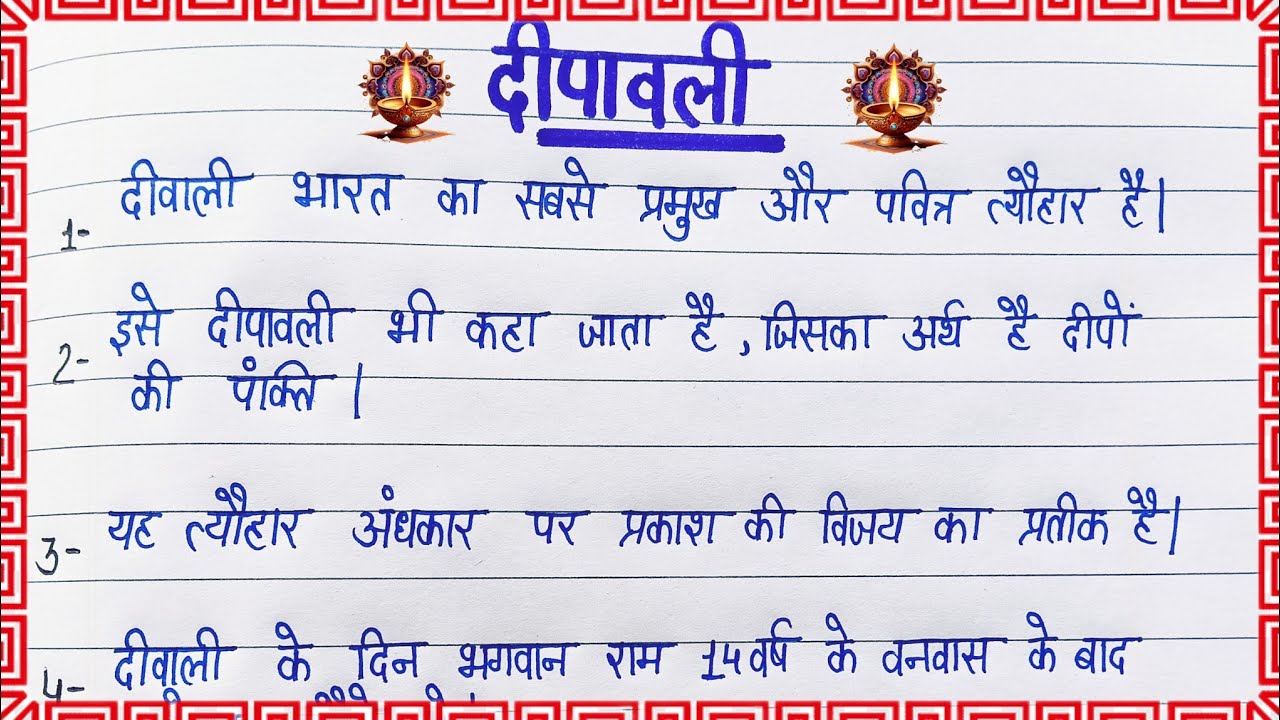 दीपावली
1- दीवाली भारत का सबसे प्रमुख और पवित्र त्यौहार है।
2- इसे दीपावली भी कहा जाता है, जिसका अर्थ है दीपों
की पंक्ति।
3- यह त्यौहार अंधकार पर प्रकाश की विजय का प्रतीक है।
4- दीवाली के दिन भगवान राम 14 वर्ष के वनवास के बाद